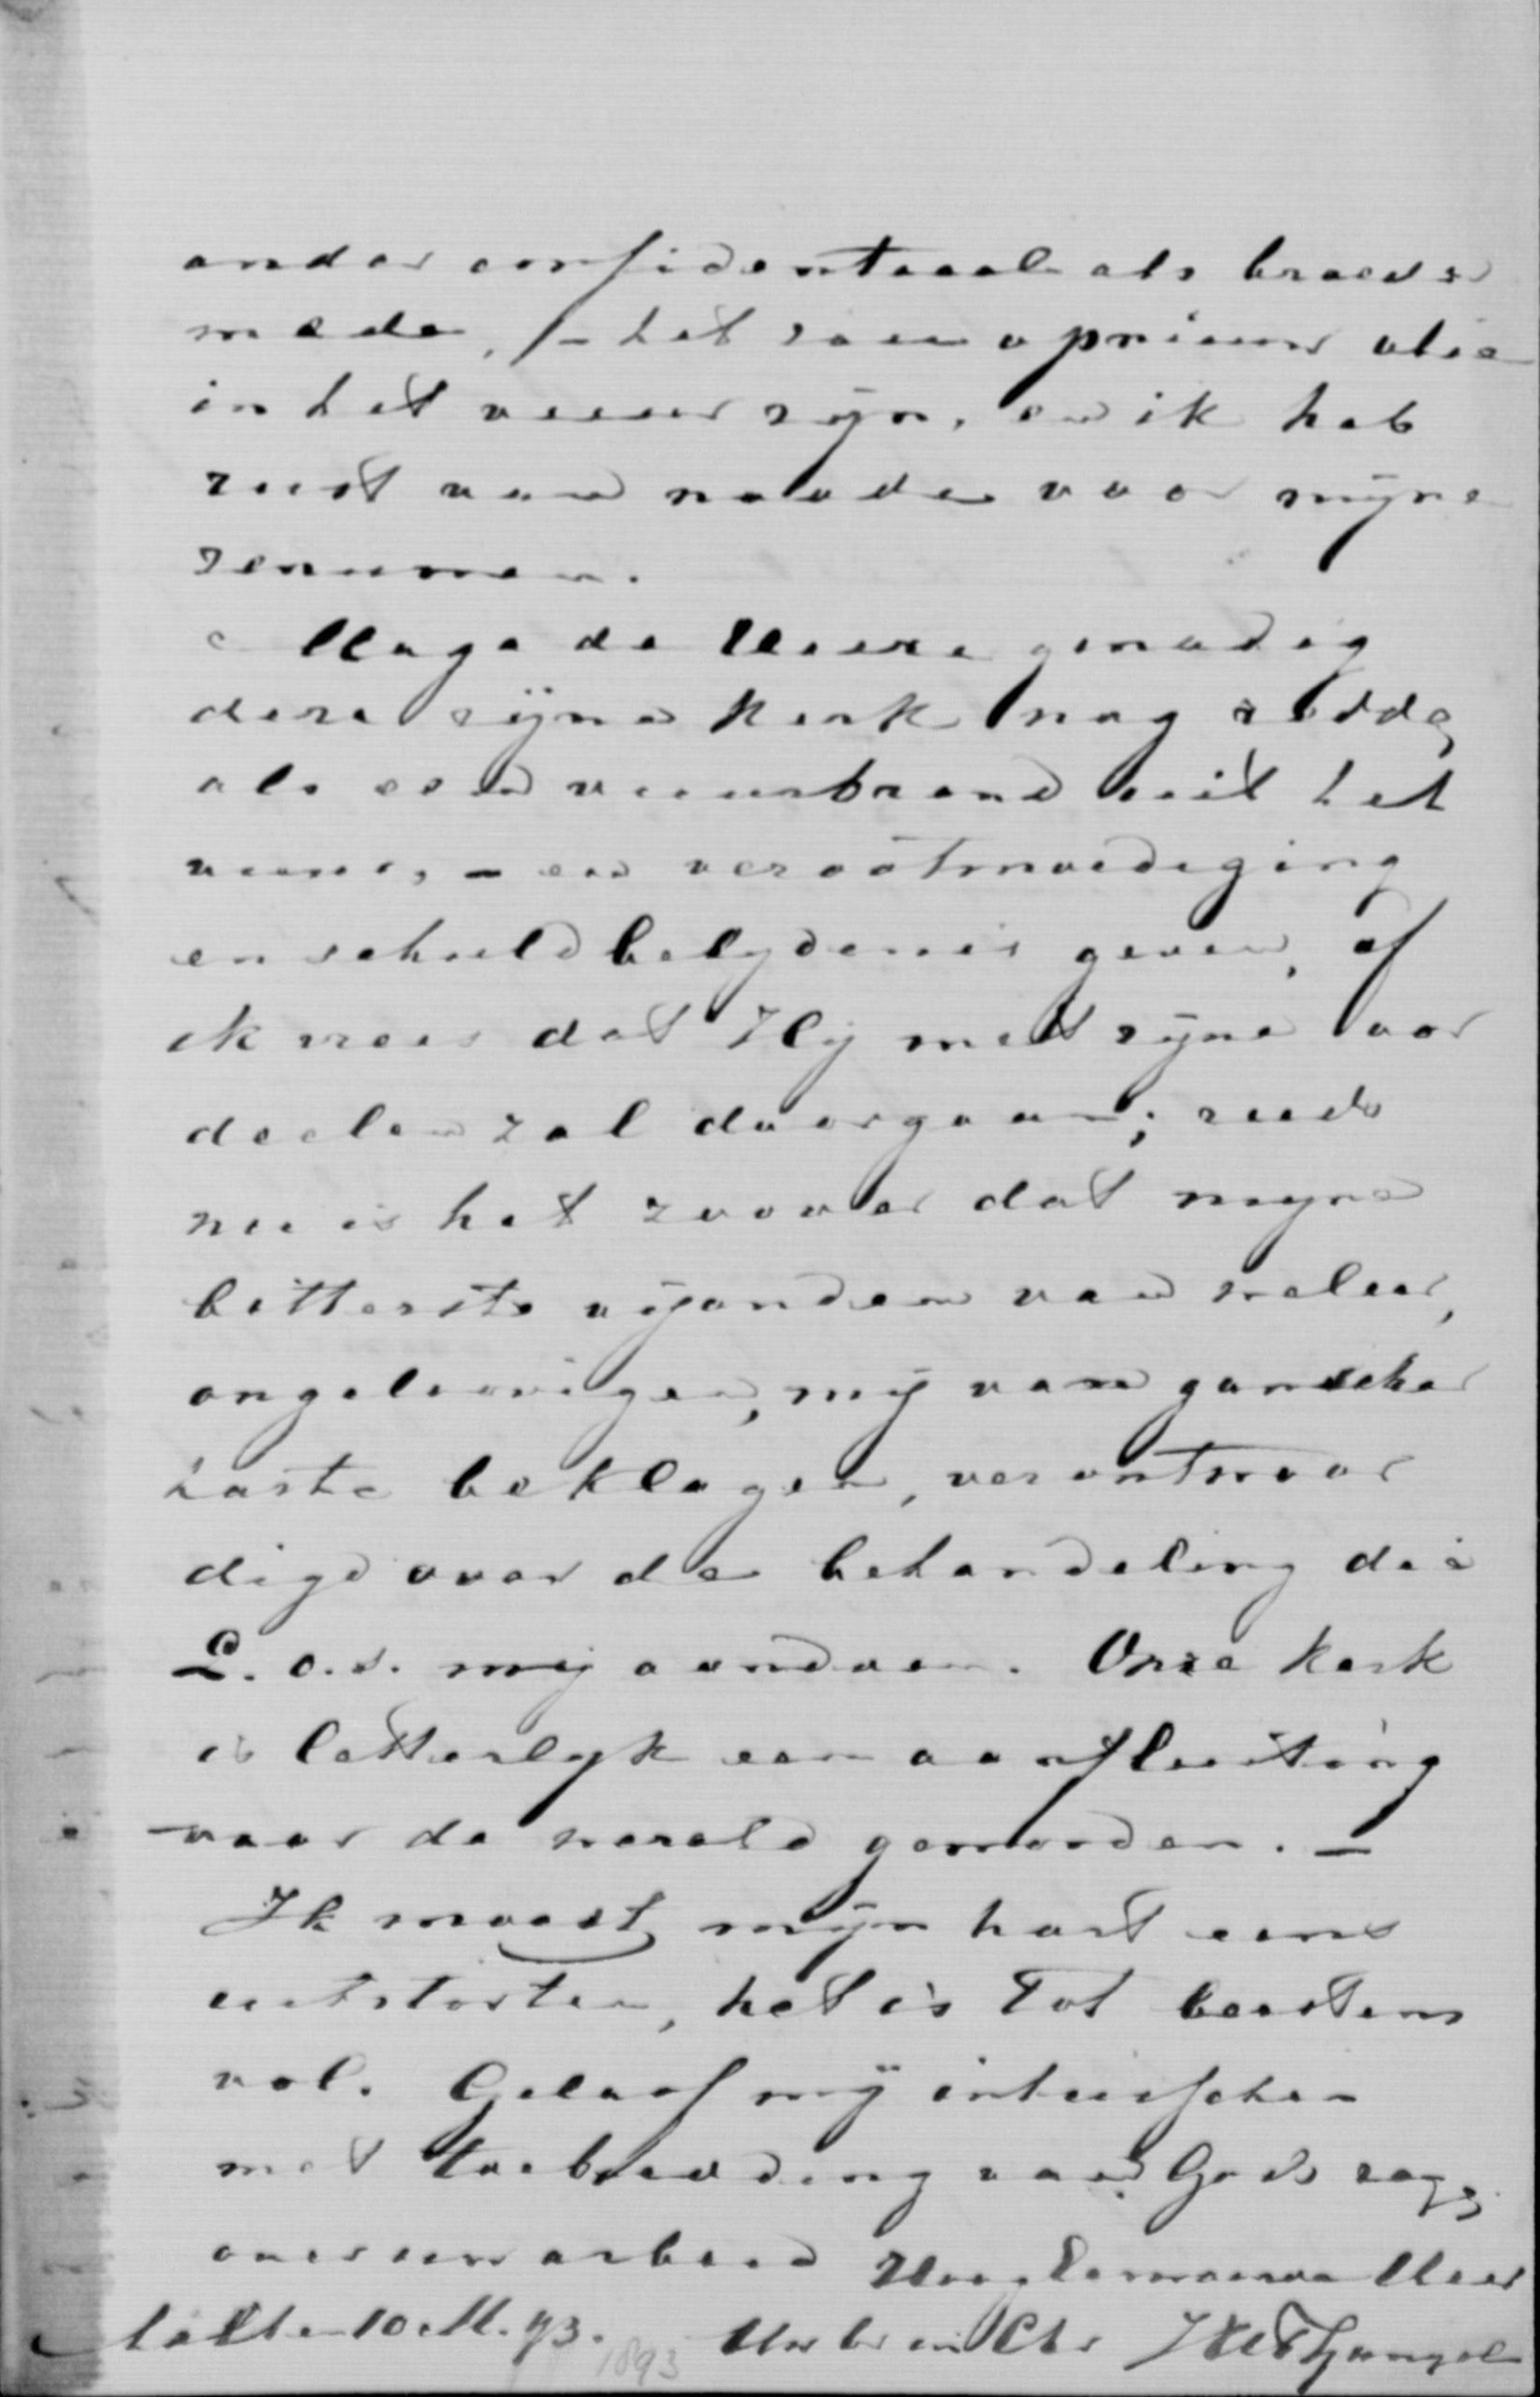 onder confidentieel als broeder
mede, – het zou opnieuw olie
in het vuur zijn, en ik heb
rust van noode voor mijne
zenuwen.
Moge de Heere genadig
deze zijne Kerk nog redde
als een vuurbrand uit het
vuur, – en verootmoediging
en schuldbelydenis geven, of
ik vrees dat Hij met zijne oor
deelen zal doorgaan; reeds
nu is het zoover dat mijne
bitterste vijanden van weleer,
ongeloovigen, mij van ganscher
harte beklagen, verontwaar
digd over de behandeling die
L. c.s. mij aandoen. Onze Kerk
is letterlyk een aanfluiting
voor de wereld geworden. –
Ik moest mijn hart eens
uitstorten, het is tot berstens
vol. Geloof mij intusschen
met toebidding van Gods zegen
over uw arbeid Hoog Eerwaarde Heer
10 M. 93. 1893 Uw br in Chr